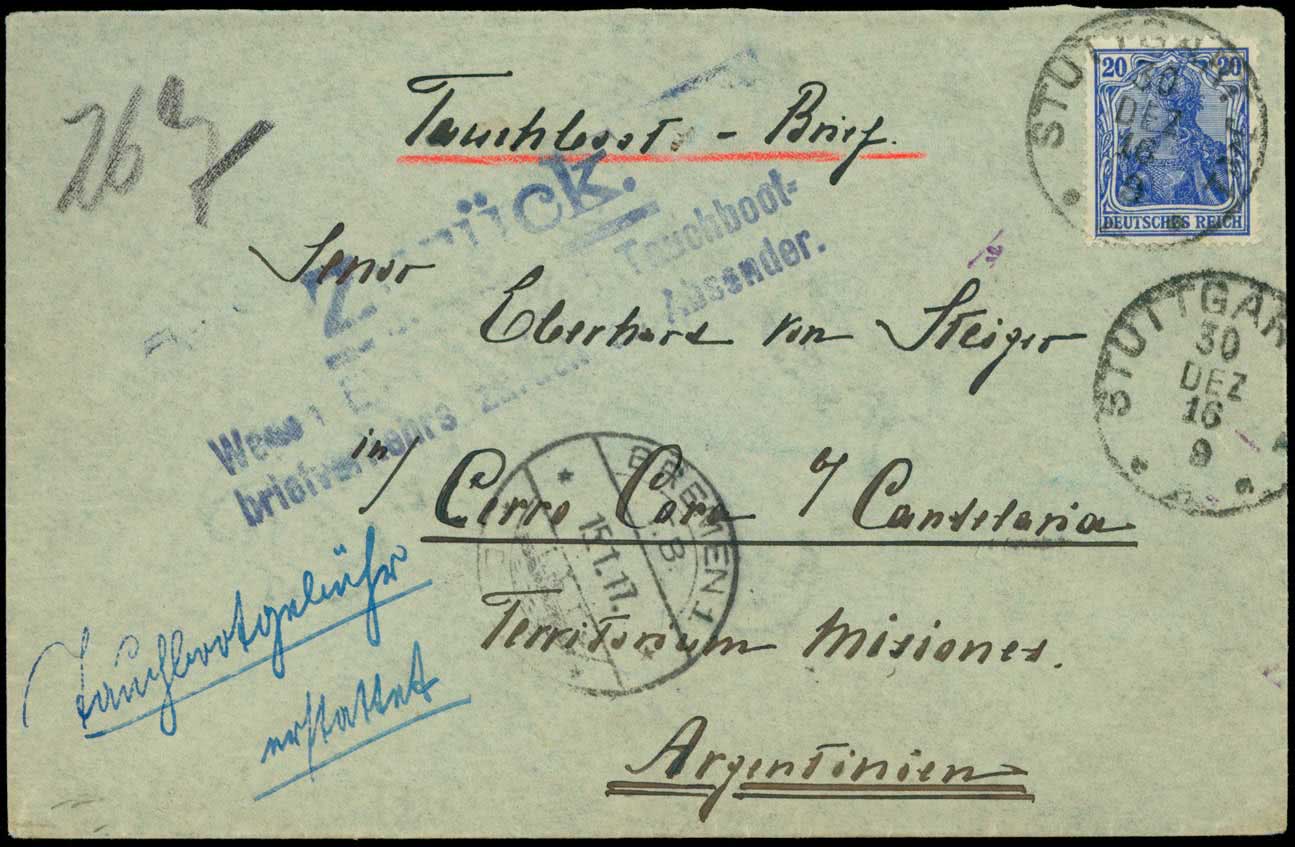 20 20
DEUTSCHES REICH
STUTTGART
30
DEZ
16
9
Tauchboots-Brief.
Zurück.
Tauchboot-
briefverkehrs zurück Absender.
Senor
Eberhard von Steiger
STUTTGAR
30
DEZ
16
9
in/ Cerro Cora o/ Candelaria
BREMEN 1
15.1.17.
Territorium Misiones.
Argentinien
Tauchbootgebühr
erstattet